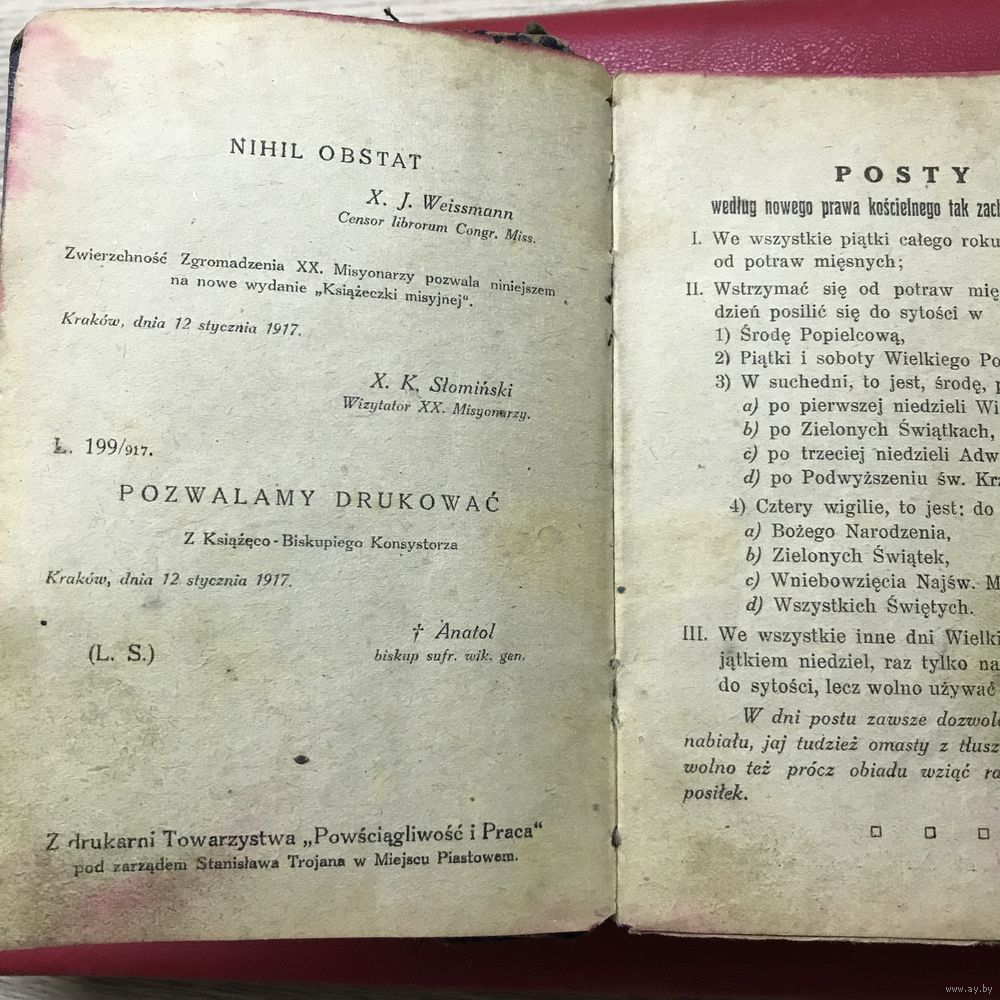 NIHIL OBSTAT
X. J. Weissmann
Censor librorum Congr. Miss.
Zwierzchność Zgromadzenia XX. Misyonarzy pozwala niniejszem
na nowe wydanie „Książeczki misyjnej“.
Kraków, dnia 12 stycznia 1917.
X. K. Słomiński
Wizytator XX. Misyonarzy.
L. 199/917.
POZWALAMY DRUKOWAĆ
Z Książęco-Biskupiego Konsystorza
Kraków, dnia 12 stycznia 1917.
† Anatol
(L. S.)
biskup sufr. wik. gen.
Z drukarni Towarzystwa „Powściągliwość i Praca“
pod zarządem Stanisława Trojana w Miejscu Piastowem.
POSTY
według nowego prawa kościelnego tak zach
I. We wszystkie piątki całego roku
od potraw mięsnych;
II. Wstrzymać się od potraw mię
dzień posilić się do sytości w
1) Środę Popielcową,
2) Piątki i soboty Wielkiego Po
3) W suchedni, to jest, środę, p
a) po pierwszej niedzieli Wi
b) po Zielonych Świątkach,
c) po trzeciej niedzieli Adw
d) po Podwyższeniu św. Krz
4) Cztery wigilie, to jest: do
a) Bożego Narodzenia,
b) Zielonych Świątek,
c) Wniebowzięcia Najśw. M
d) Wszystkich Świętych.
III. We wszystkie inne dni Wielki
jątkiem niedziel, raz tylko na
do sytości, lecz wolno używać
W dni postu zawsze dozwol
nabiału, jaj tudzież omasty z tłusz
wolno też prócz obiadu wziąć ra
posiłek.
www.ay.by